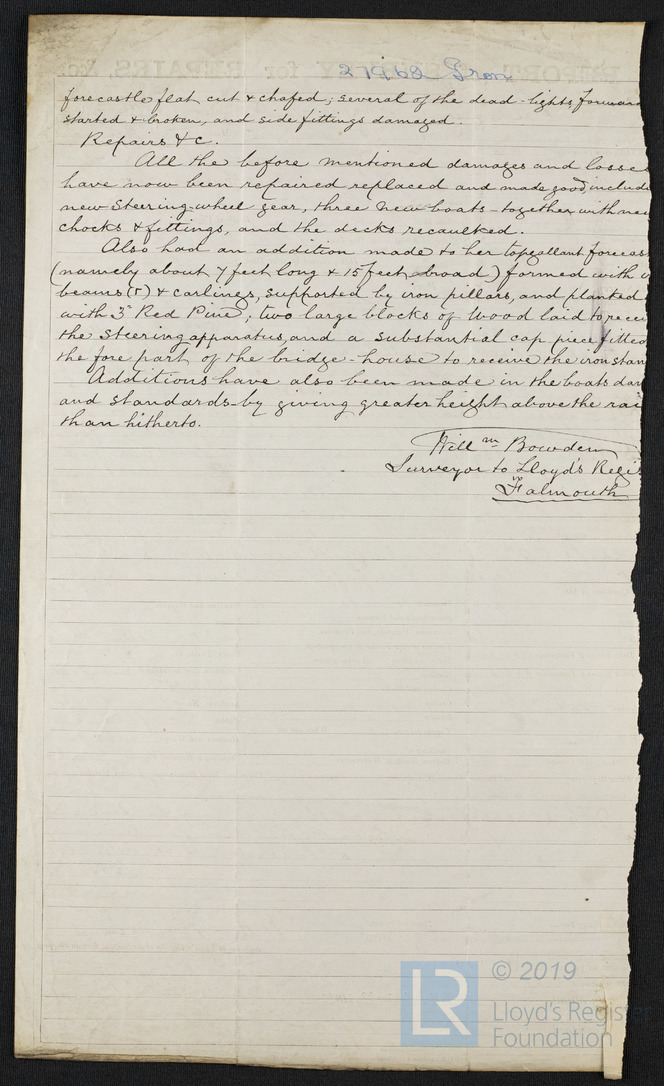 27962 Iron
forecastle flat cut & chafed; several of the dead-lights forward
started & broken, and side fittings damaged.
Repairs &c.
All the before mentioned damages and losses
have now been repaired replaced and made good, includ
new steering-wheel gear, three new boats - together with new
chocks & fittings, and the decks recaulked.
Also had an addition made to her topgallant forecas
(namely about 7 feet long & 15 feet broad) formed with
beams (5) & carlings, supported by iron pillars, and planked
with 3" Red Pine; two large blocks of Wood laid to recei
the steering apparatus, and a substantial cap piece fitted
the fore part of the bridge-house to receive the iron stan
Additions have also been made in the boats dav
and standards - by giving greater height above the rai
than hitherto.
Will m Bowden
Surveyor to Lloyd's Regis
Falmouth
© 2019
LR
Lloyd's Register
Foundation